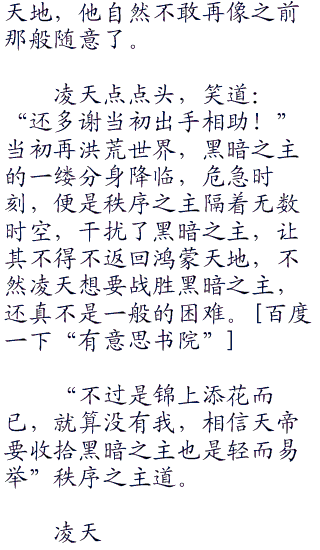 天地，他自然不敢再像之前
那般随意了。
凌天点点头，笑道：
“还多谢当初出手相助！”
当初再洪荒世界，黑暗之主
的一缕分身降临，危急时
刻，便是秩序之主隔着无数
时空，干扰了黑暗之主，让
其不得不返回鸿蒙天地，不
然凌天想要战胜黑暗之主，
还真不是一般的困难。[百度
一下“有意思书院”]
“不过是锦上添花而
已，就算没有我，相信天帝
要收拾黑暗之主也是轻而易
举”秩序之主道。
凌天